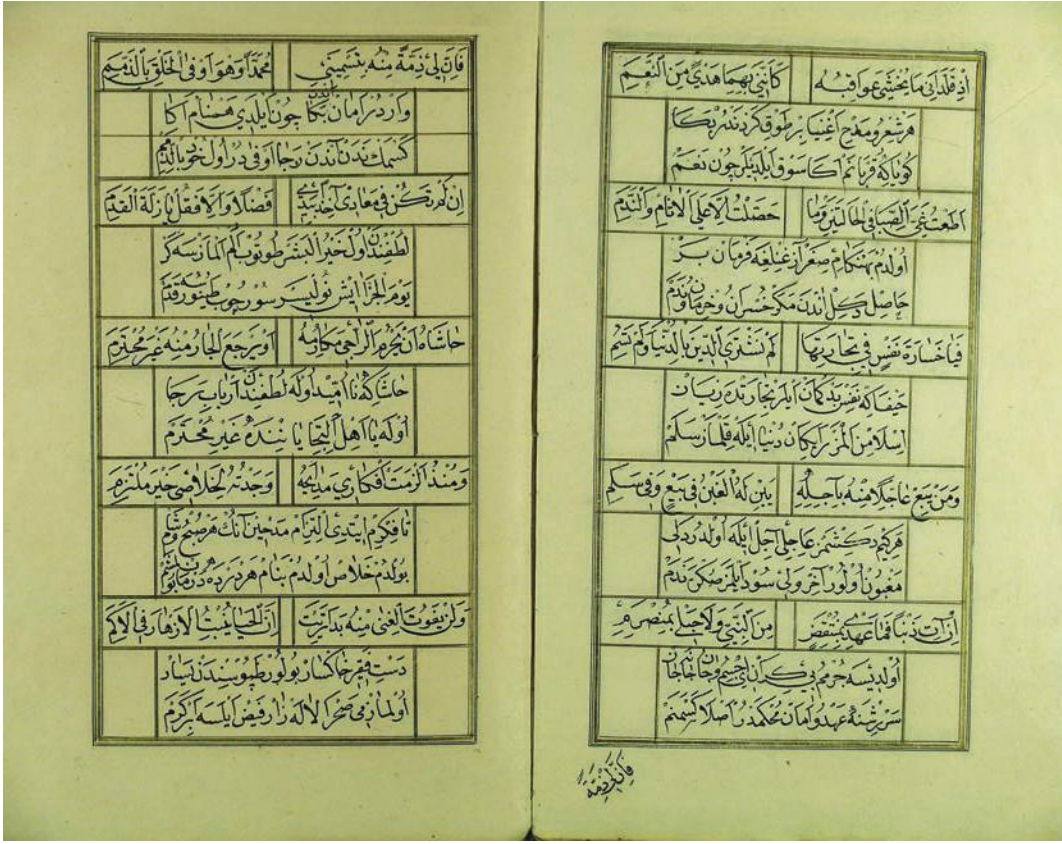 اذ قلداني ما يخشى عواقبه كأنني بهما هدي من النعم
هر شعر و مدح اغنيا بر طوق كردندر بكا
كويا كه قربانم اكا سوق ايلديلر چون نعم
اطعت غي الصبا في الحالتين وما حصلت الا على الاثام والندم
اولدم بهنكام صغر ازغنلغه فرمان بر
حاصل دكل اندن مكر خسران و حرمان و ندم
فيا خسارة نفس في تجارتها لم تشتري الدين بالدنيا ولم تسم
حيفا كه نفس بدكمان ايلر تجارتده زيان
اسلامن المز رايكان دنيا ايله قلماز سلم
ومن يبع عاجلا منه بآجله يبن له الغبن في بيع وفي سلم
هر كيم دكشمز عاجلي آجل ايله اولدر دلي
مغبون اولور آخر ولي سود ايلمز صكره ندم
ان آت ذنبا فما عهدي بمنتقض من النبي ولا حبلي بمنصرم
اولديسه جرمم بي كران اي جسم و جان
سررشته عهد و امان محكمدر اصلا كسمنم
فان لي ذمة
فان لي ذمة منه بتسميتي محمدا وهو اوفى الخلق بالذمم
واردر امان اندن بكا چون ايلدي همنام اكا
كسمك ندن اندن رجا اوفى در اول خود بالذمم
ان لم تكن في معادي آخذا بيدي فضلا والا فقل يا زلة القدم
لطفندن اول خير البشر طوتوب الم المازسه كر
يوم الجزا ايش نوليسر سورچوب طينورسه قدم
حاشاه ان يحرم الراجي مكارمه او يرجع الجار منه غير محترم
حاشا كه نا اميد اوله لطفيندن ارباب رجا
اوله يا اهل التجا يا ننده غير محترم
ومنذ الزمت افكاري مدايحه وجدته لخلاصي خير ملتزم
تا فكرم ايتدي التزام مدحين آنك هر صبح و شام
بولدم خلاص اولدم بنام هر درده درمان بولمشم
ولن يفوت الغنى منه يدا تربت ان الحيا ينبت الازهار في الاكم
دست فقير خاكسار بولور طپوسندن يسار
اولمازمي صحرا لاله زار فيض ايلسه ابر كرم